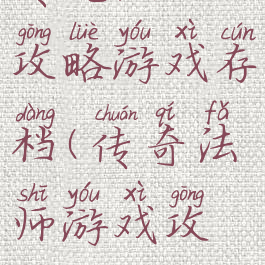 gōng lüè yóu xì cún
攻略游戏存
dàng chuán qí fǎ
档(传奇法
shī yóu xì gōng
师游戏攻